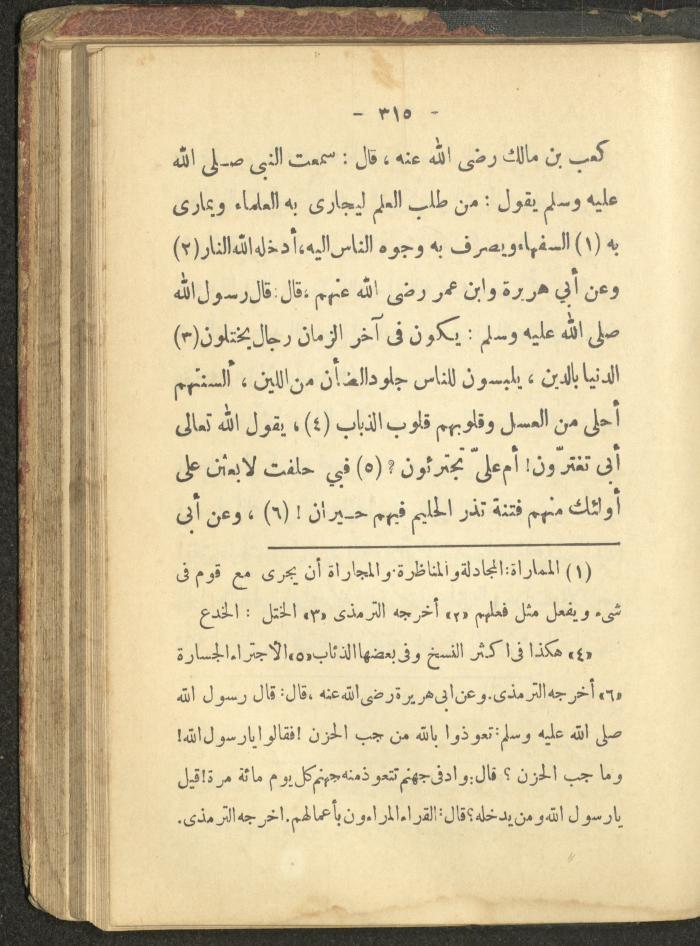 - ٣١٥ -
كعب بن مالك رضى الله عنه ، قال : سمعت النبي صلى الله
عليه وسلم يقول : من طلب العلم ليجارى به العلماء ويمارى
به (١) السفهاء ويصرف به وجوه الناس اليه، أدخله الله النار (٢)
وعن أبي هريرة وابن عمر رضى الله عنهم ، قال : قال رسول الله
صلى الله عليه وسلم : يكون فى آخر الزمان رجال يختلون (٣)
الدنيا بالدين ، يلبسون للناس جلود الضأن من اللين ، ألسنتهم
أحلى من العسل وقلوبهم قلوب الذباب (٤) ، يقول الله تعالى
أبى تغترّون! أم علىّ تجترئون ? (٥) فبي حلفت لابعثن على
أولئك منهم فتنة تذر الحليم فيهم حيران ! (٦) ، وعن أبى
(١) المماراة: المجادلة والمناظرة. والمجاراة أن يجرى مع قوم فى
شىء ويفعل مثل فعلهم «٢» أخرجه الترمذى «٣» الختل : الخدع
«٤» هكذا فى اكثر النسخ وفى بعضها الذئاب «٥» الاجتراء الجسارة
«٦» أخرجه الترمذى. وعن ابى هريرة رضى الله عنه ، قال: قال رسول الله
صلى الله عليه وسلم: تعوذوا بالله من جب الحزن ! فقالوا يارسول الله!
وما جب الحزن ؟ قال: واد فى جهنم تتعوذ منه جهنم كل يوم مائة مرة! قيل
يارسول الله ومن يدخله؟ قال: القراء المراءون بأعمالهم. اخرجه الترمذى.